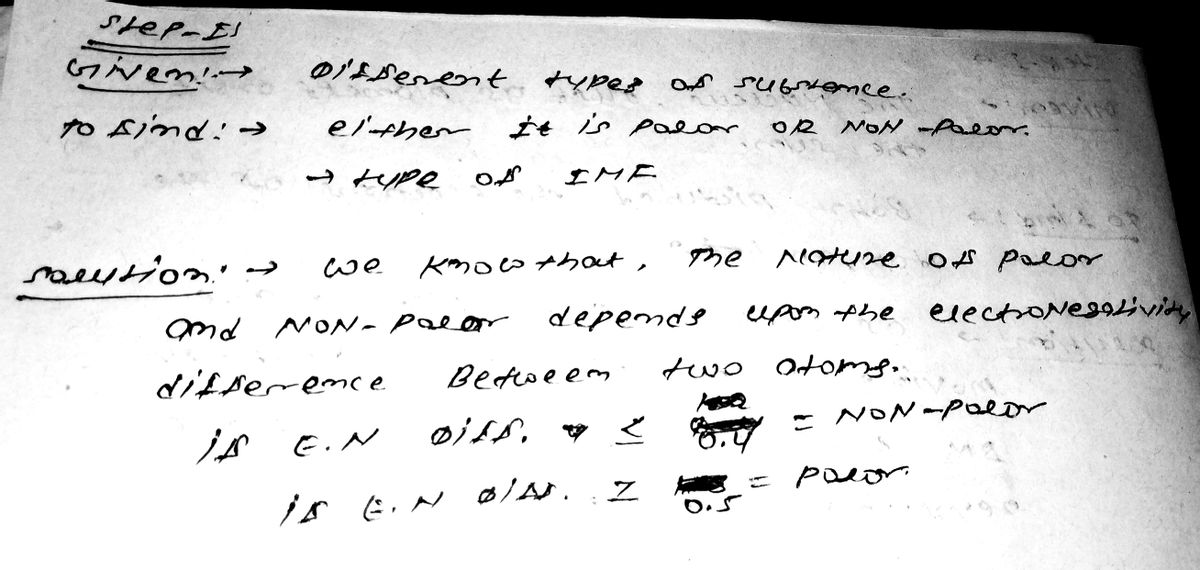 Step-I:
Given:→ Different types of substance.
To find:→ either it is polar OR NON-polar.
→ type of IMF
Solution:→ we know that, The Nature of polar
and NON-polar depends upon the electroNegativity
difference Between two atoms.
if E.N Diff. ≤ 0.4 = NON-polar
if E.N Diff. ≥ 0.5 = polar.